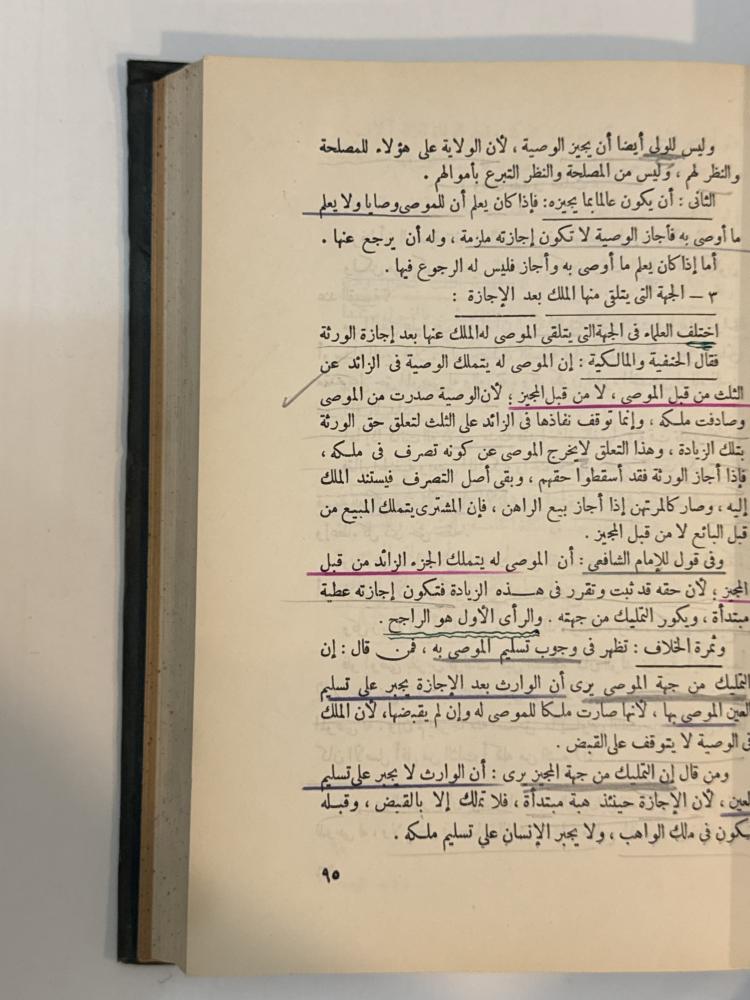 وليس للولى أيضا أن يجيز الوصية ، لأن الولاية على هؤلاء للمصلحة
والنظر لهم ، وليس من المصلحة والنظر التبرع بأموالهم .
الثانى : أن يكون عالما بما يجيزه : فإذا كان يعلم أن للموصى وصايا ولا يعلم
ما أوصى به فأجاز الوصية لا تكون إجازته ملزمة ، وله أن يرجع عنها .
أما إذا كان يعلم ما أوصى به وأجاز فليس له الرجوع فيها .
٣ – الجهة التى يتلقى منها الملك بعد الإجازة :
اختلف العلماء فى الجهة التى يتلقى الموصى له الملك عنها بعد إجازة الورثة
فقال الحنفية والمالكية : إن الموصى له يتملك الوصية فى الزائد عن
الثلث من قبل الموصى ، لا من قبل المجيز ؛ لأن الوصية صدرت من الموصى
وصادفت ملكه ، وإنما توقف نفاذها فى الزائد على الثلث لتعلق حق الورثة
بتلك الزيادة ، وهذا التعلق لا يخرج الموصى عن كونه تصرف فى ملكه ،
فإذا أجاز الورثة فقد أسقطوا حقهم ، وبقى أصل التصرف فيستند الملك
إليه ، وصار كالمرتهن إذا أجاز بيع الراهن ، فإن المشترى يتملك المبيع من
قبل البائع لا من قبل المجيز .
وفى قول للإمام الشافعى : أن الموصى له يتملك الجزء الزائد من قبل
المجيز ؛ لأن حقه قد ثبت وتقرر فى هـــذه الزيادة فتكون إجازته عطية
مبتدأة ، ويكون التمليك من جهته . والرأى الأول هو الراجح .
وثمرة الخلاف : تظهر فى وجوب تسليم الموصى به ، فمن قال : إن
التمليك من جهة الموصى يرى أن الوارث بعد الإجازة يجبر على تسليم
العين الموصى بها ، لأنها صارت ملكا للموصى له وإن لم يقبضها، لأن الملك
فى الوصية لا يتوقف على القبض .
ومن قال إن التمليك من جهة المجيز يرى : أن الوارث لا يجبر على تسليم
العين ، لأن الإجازة حينئذ هبة مبتدأة ، فلا تملك إلا بالقبض ، وقبله
يكون فى ملك الواهب ، ولا يجبر الإنسان على تسليم ملكه .
٩٥